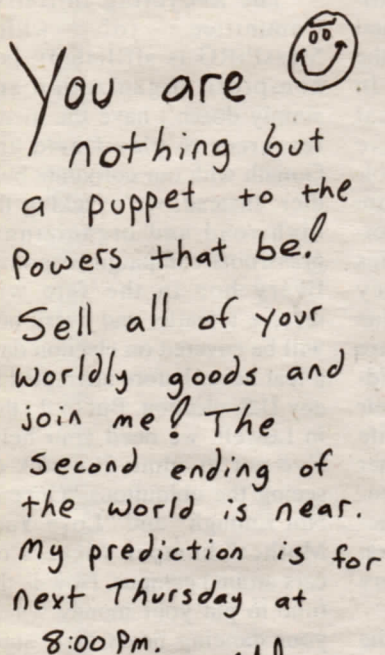 You are
nothing but
a puppet to the
powers that be!
Sell all of your
worldly goods and
join me! The
Second ending of
the world is near.
My prediction is for
next Thursday at
8:00 Pm.